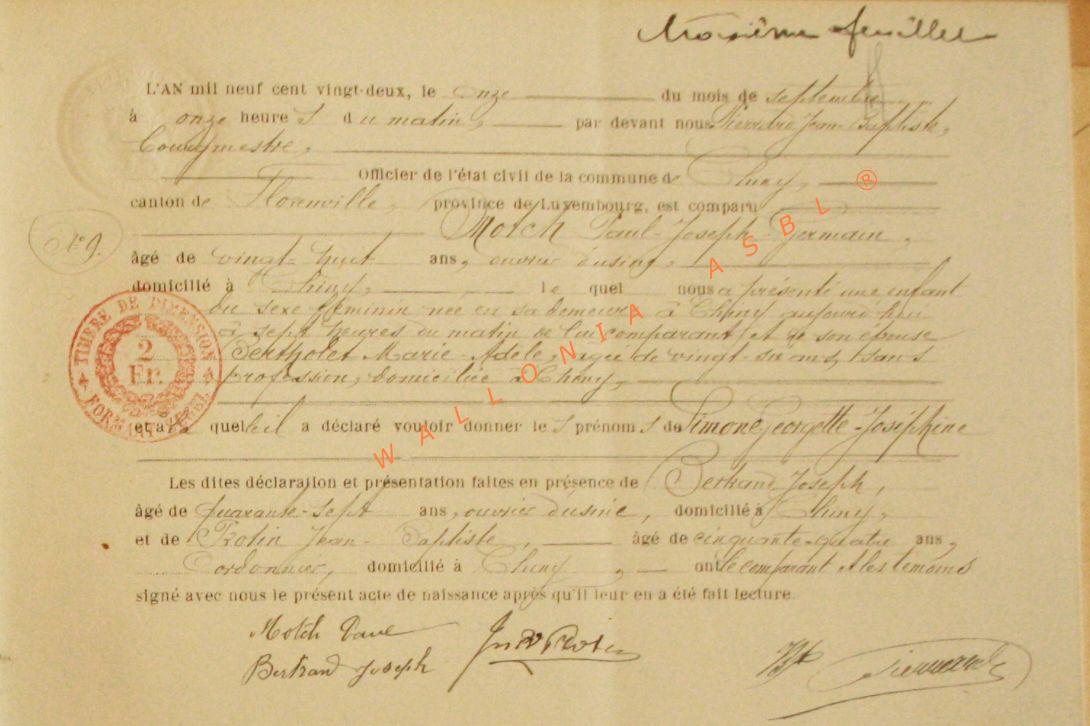 troisième feuillet
L'AN mil neuf cent vingt-deux, le onze du mois de septembre
à onze heures du matin, par devant nous Jean Baptiste,
Bourgmestre,
Officier de l'état civil de la commune de Chiny,
canton de Florenville, province de Luxembourg, est comparu
Motch Paul-Joseph-Germain,
N° 9.
âgé de vingt-huit ans, ouvrier d'usine,
domicilié à Chiny, le quel nous a présenté une enfant
du sexe féminin née en sa demeure à Chiny aujourd'hui
à sept heures du matin de lui comparant et de son épouse
Bertholet Marie-Adèle, âgée de vingt-six ans, sans
profession, domiciliée à Chiny,
et à quel il a déclaré vouloir donner les prénoms de Simone Georgette-Joséphine
Les dites déclaration et présentation faites en présence de Bertrand Joseph,
âgé de quarante-sept ans, ouvrier d'usine, domicilié à Chiny,
et de Protin Jean-Baptiste, âgé de cinquante-quatre ans,
Cordonnier, domicilié à Chiny, ont le comparant et les témoins
signé avec nous le présent acte de naissance après qu'il leur en a été fait lecture.
Motch Paul
Bertrand Joseph
Protin
TIMBRE DE DIMENSION
2
Fr.
WALLONIA ASBL ®